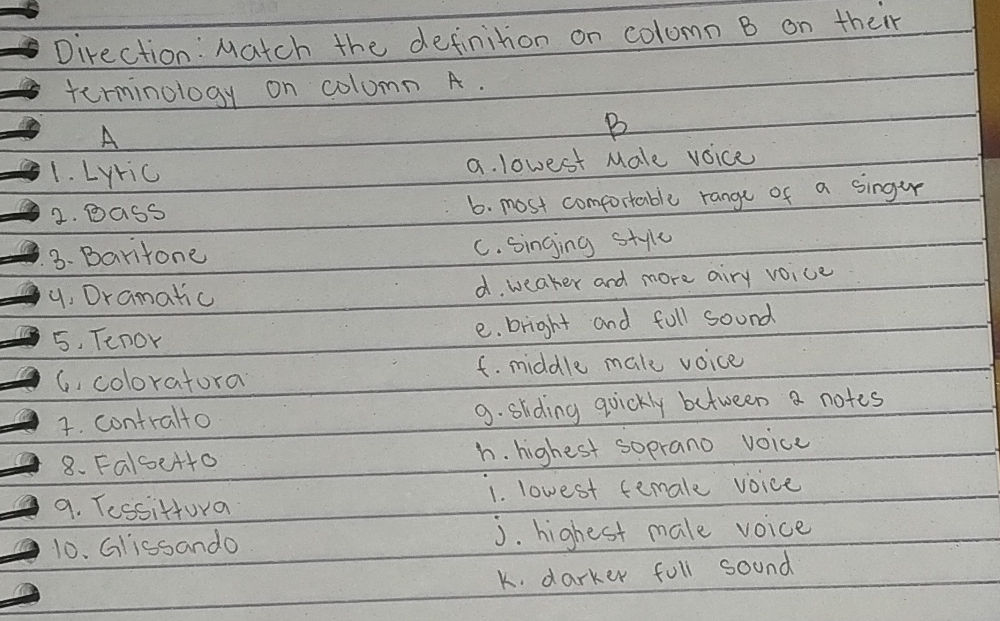 Direction: Match the definition on column B on their
terminology on column A.
A B
1. Lyric a. lowest Male voice
2. Bass b. most comfortable range of a singer
3. Baritone c. singing style
4. Dramatic d. weaker and more airy voice
5. Tenor e. bright and full sound
6. coloratura f. middle male voice
7. contralto g. sliding quickly between 2 notes
8. Falsetto h. highest soprano voice
9. Tessittura i. lowest female voice
10. Glissando j. highest male voice
k. darker full sound